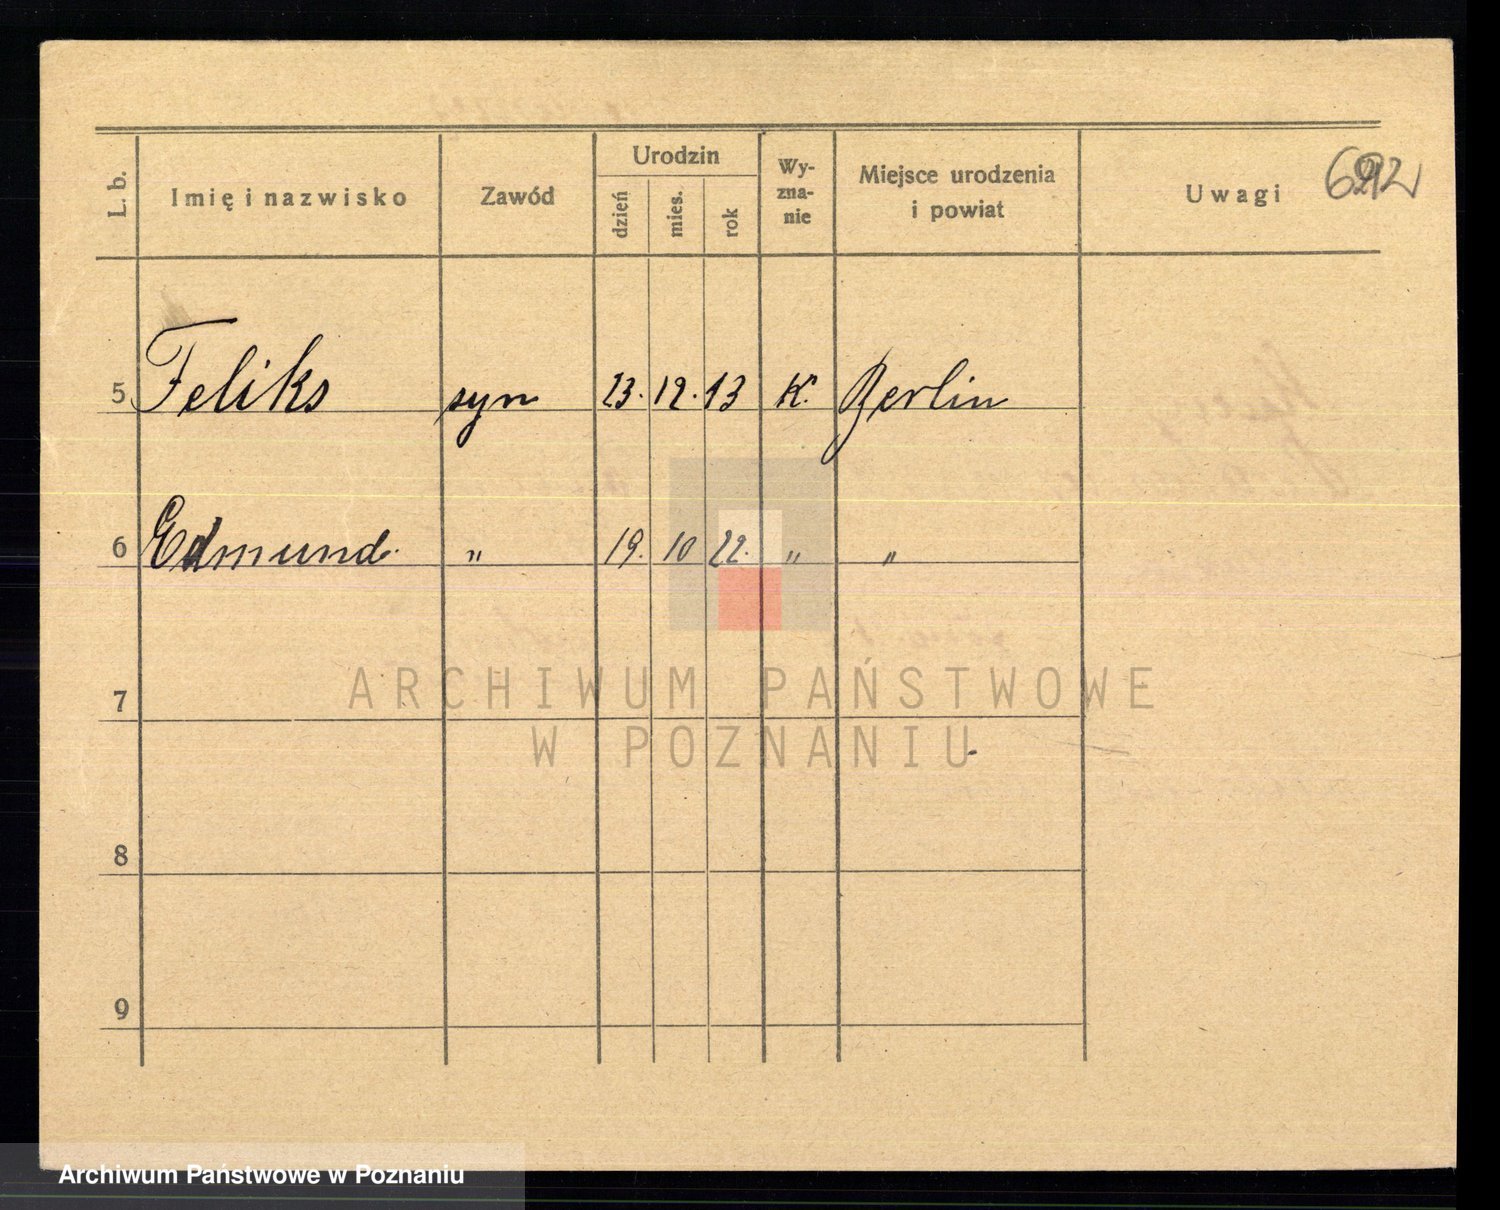 L. b. Imię i nazwisko Zawód Urodzin dzień mies. rok Wy-zna-nie Miejsce urodzenia i powiat Uwagi
5 Feliks syn 23. 12. 13 K. Berlin
6 Edmund. " 19. 10 22. " "
7
8
9
ARCHIWUM PAŃSTWOWE
W POZNANIU
Archiwum Państwowe w Poznaniu